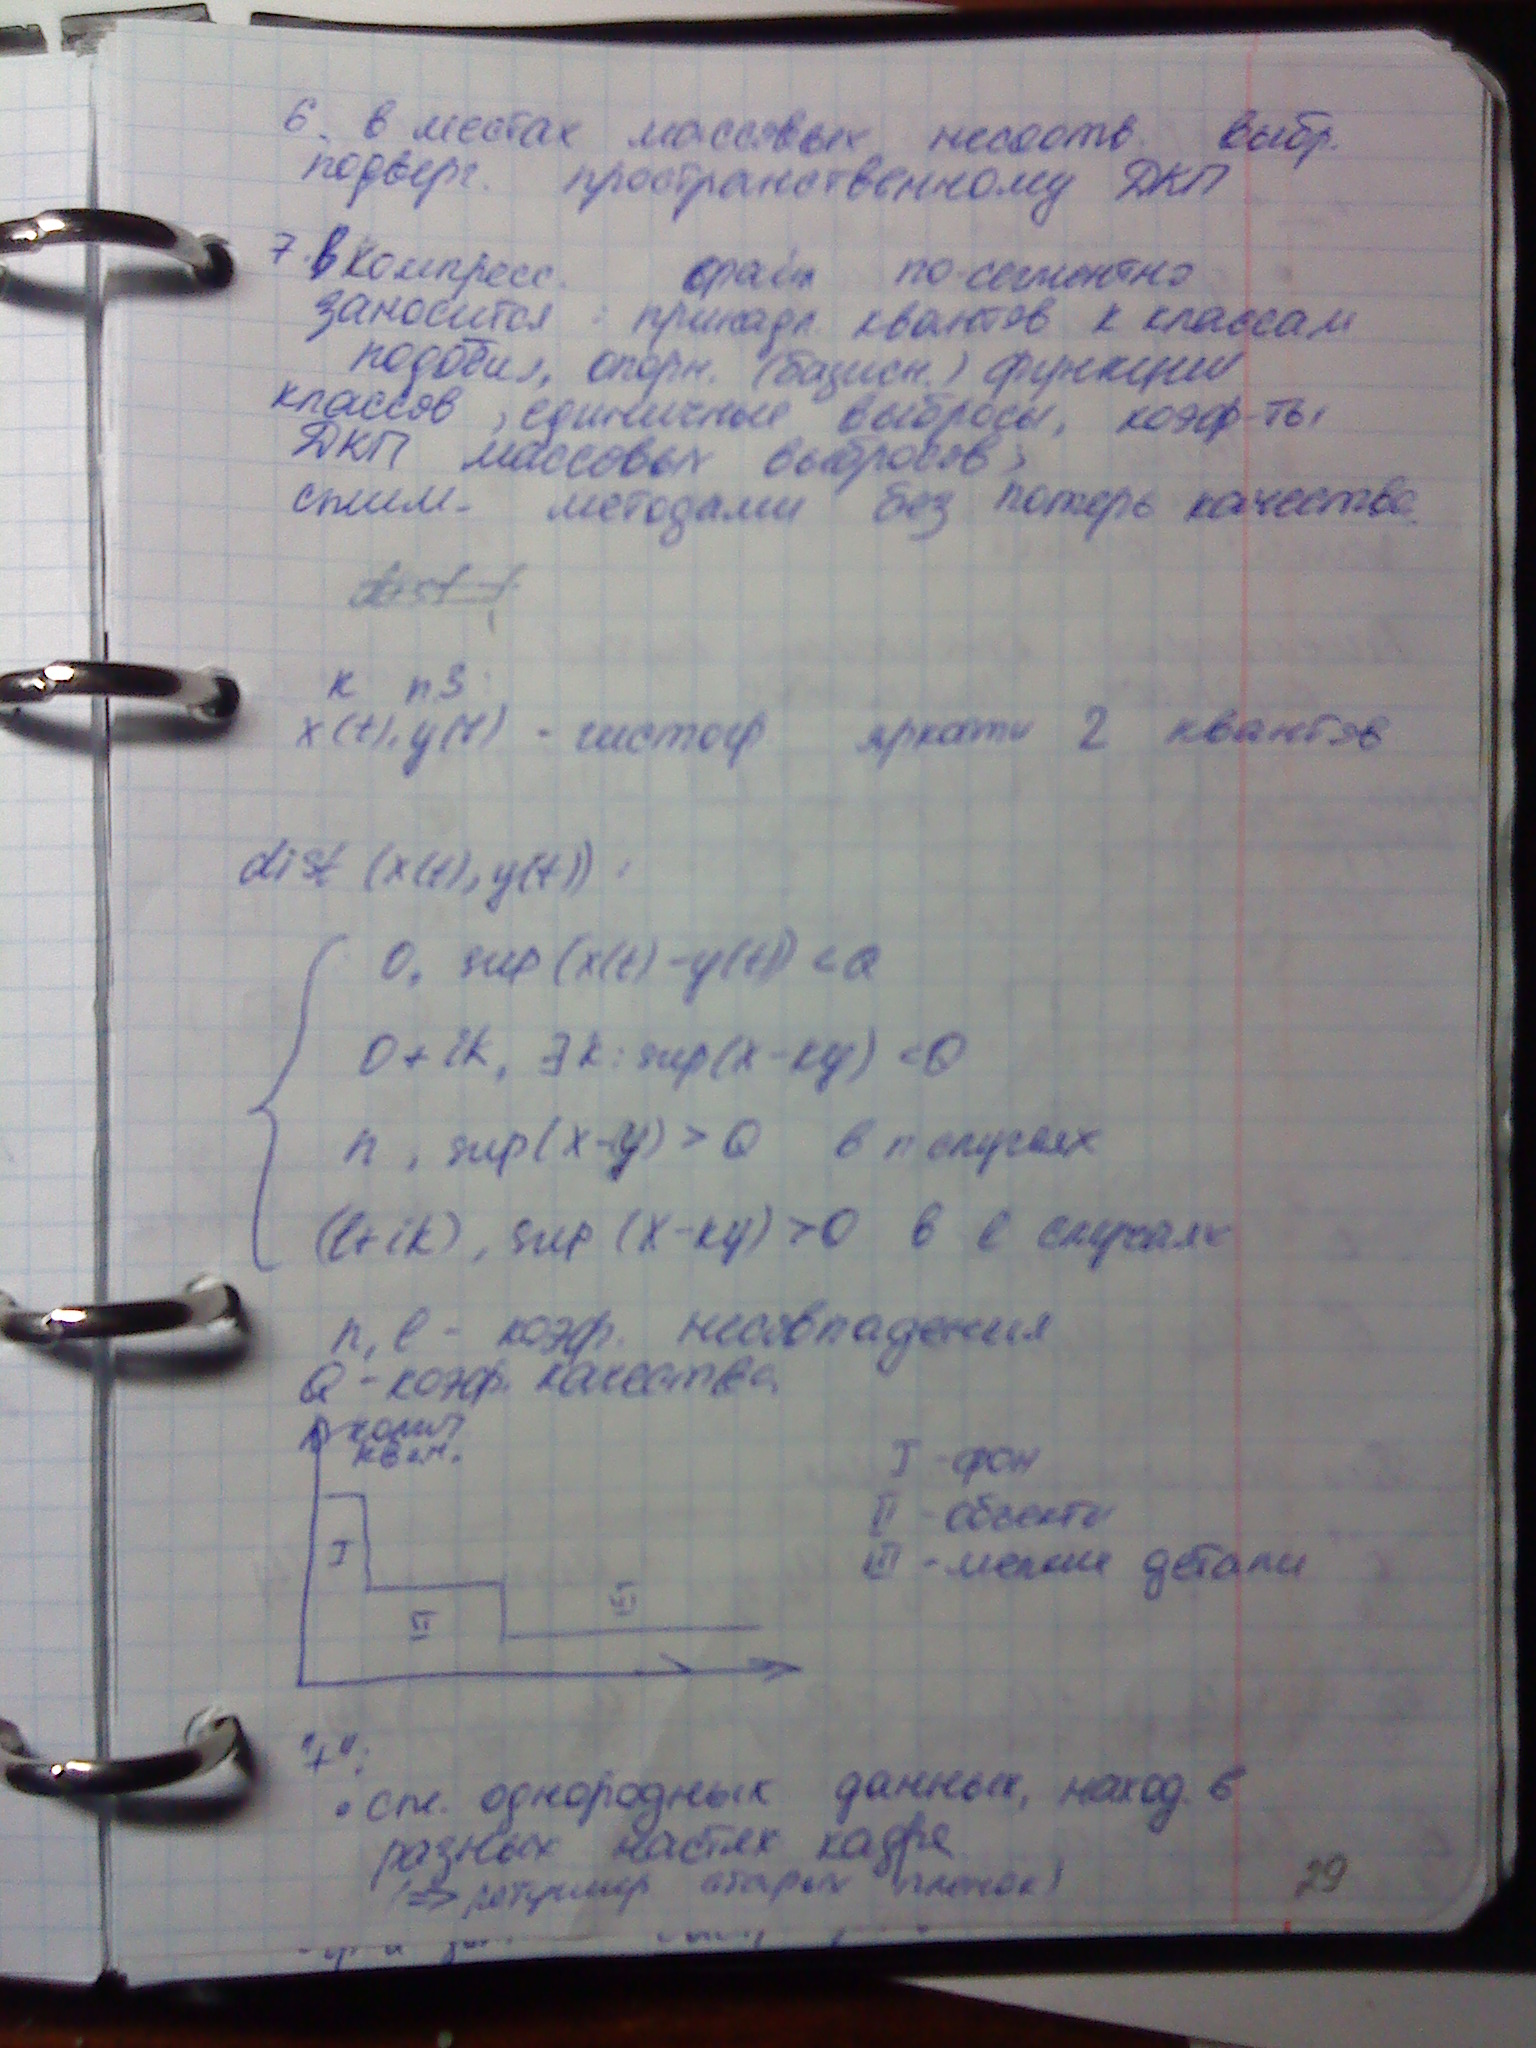 6. в местах массовых несоотв. выбр.
подверг. пространственному ДКП
7. в компресс. файл по-сегментно
заносится: принадл. квантов к классам
подобия, опорн. (базисн.) функции
классов, единичные выбросы, коэф-ты
ДКП массовых выбросов,
сжим. методами без потерь качества.
к п3:
x(t), y(t) - гистогр яркости 2 квантов
dist (x(t), y(t)):
0, sup(x(t)-y(t)) < Q
0+ik, ∃k: sup(x-ky) < Q
n, sup(x-y) > Q в n случаях
(l+ik), sup(x-ky) > Q в l случаях
n, l - коэф. несовпадения
Q - коэф. качества
колич
квант.
I - фон
II - объекты
III - мелкие детали
I
II
III
"+":
• сж. однородных данных, наход. в
разных частях кадра
(=> старых пленок)
29